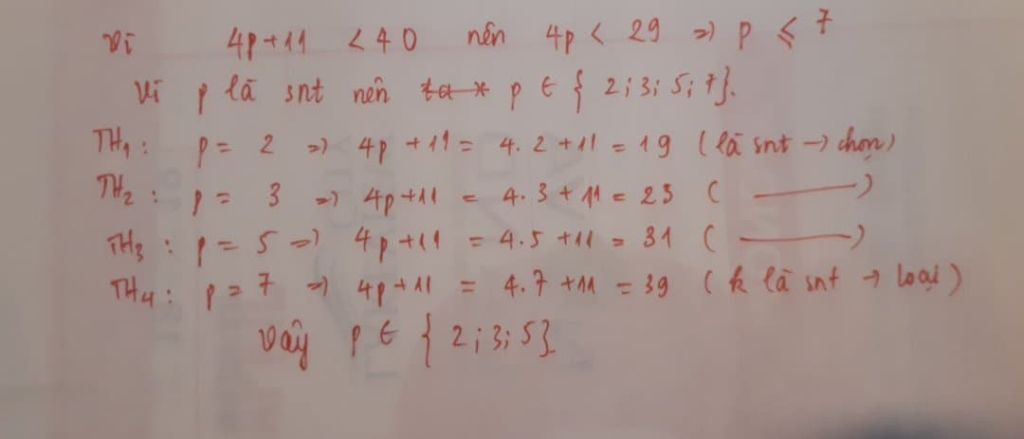 Vì 4p+11 < 40 nên 4p < 29 => p ⩽ 7
Vì p là snt nên p ∈ { 2; 3; 5; 7}.
TH1: p = 2 => 4p +11 = 4. 2 +11 = 19 (là snt → chọn)
TH2: p = 3 => 4p+11 = 4. 3 + 11 = 23 ( ——— )
TH3: p = 5 => 4p+11 = 4.5 +11 = 31 ( ——— )
TH4: p = 7 => 4p+11 = 4.7 +11 = 39 ( k là snt → loại )
Vậy p ∈ { 2; 3; 5}